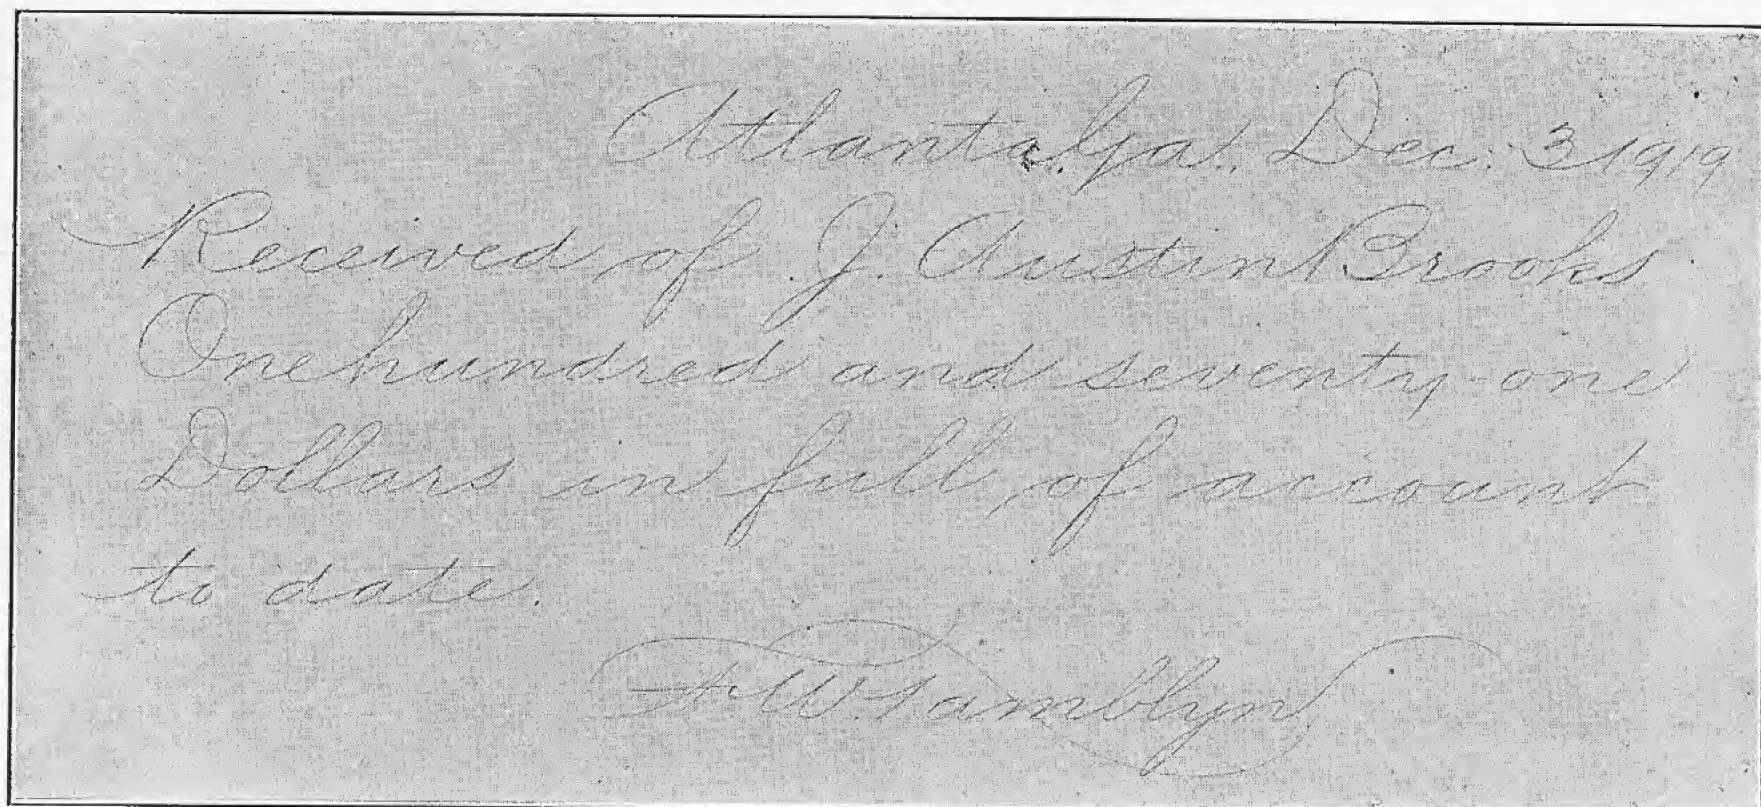 Atlanta, Ga., Dec. 3 1919
Received of J. Austin Brooks
One hundred and seventy-one
Dollars in full, of account
to date.
F. W. Tamblyn